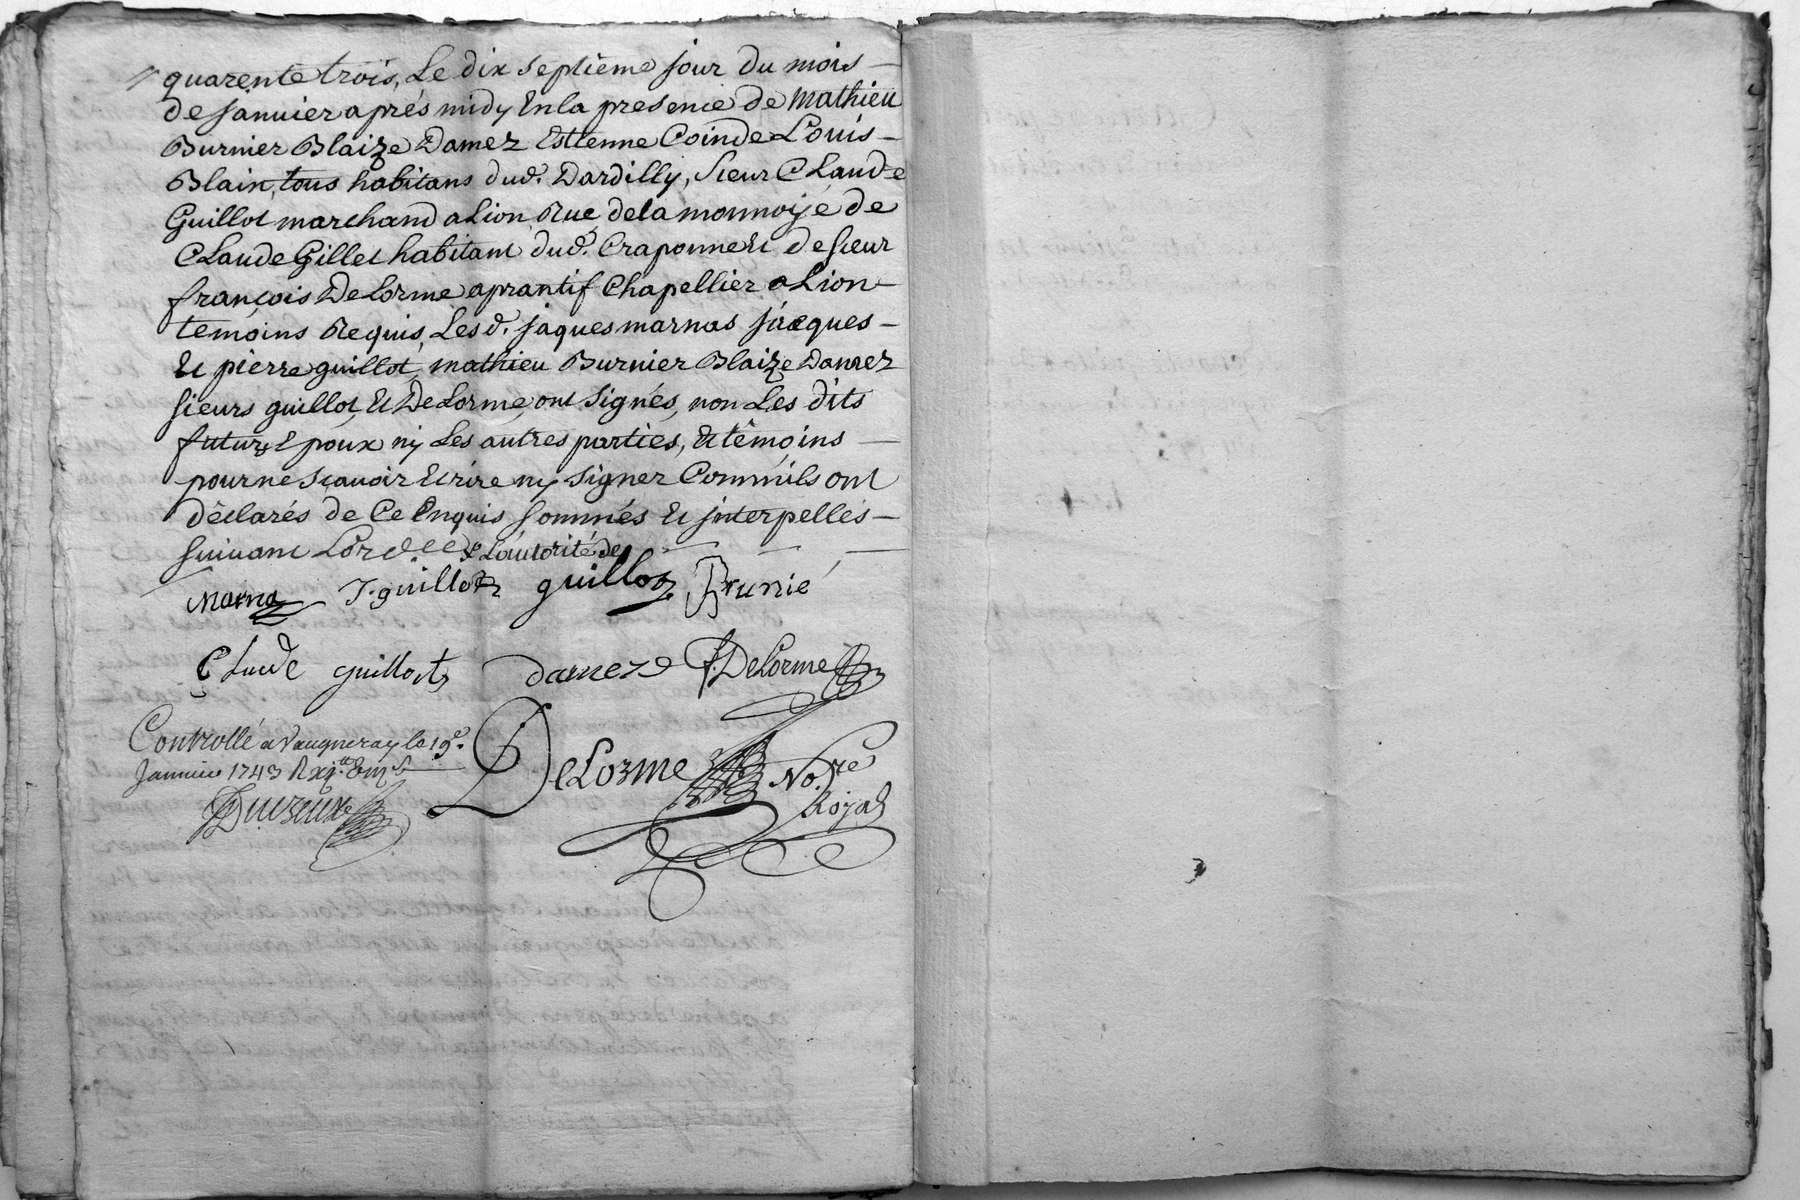 quarente trois, Le dix septieme jour du mois
de janvier aprés midy En la presence de Mathieu
Burnier Blaize Damez Estienne Coinde Louis
Blain, tous habitans dud. Dardilly, Sieur Claude
Guillot marchand a Lion Rue de la monnoije de
Claude Gillet habitant dud. Craponne Et de sieur
françois DeLorme aprantif Chapellier a Lion
temoins Requis, Lesd. jaques marnas jacques
Et pierre guillot, mathieu Burnier Blaize Damez
sieurs guillot, Et DeLorme, ont signés, non Les dits
futurs Epoux ny Les autres parties, Et témoins
pour ne scavoir Ecrire ny signer Comm'ils ont
déclarés de Ce Enquis sommés Et jnterpellés
suivant L'or & L'autorité de
marna J. guillot guillot Brunié
Claude guillot damez f. DeLorme
Controllé a Vaugneray le 19e.
Janvier 1743 R
DeLorme No.re
Royal